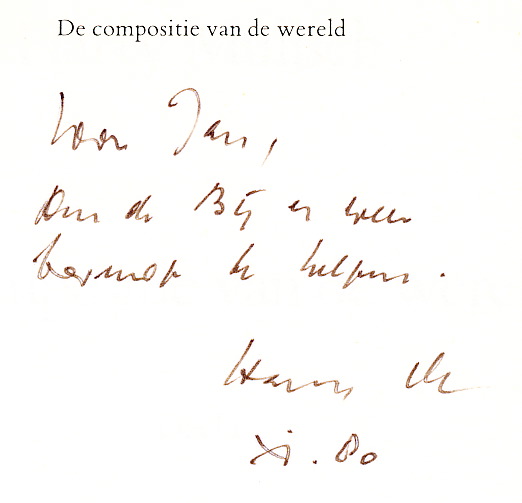 De compositie van de wereld
Voor Jan,
Om de Bij er weer
bovenop te helpen.
Harry
XI. 80